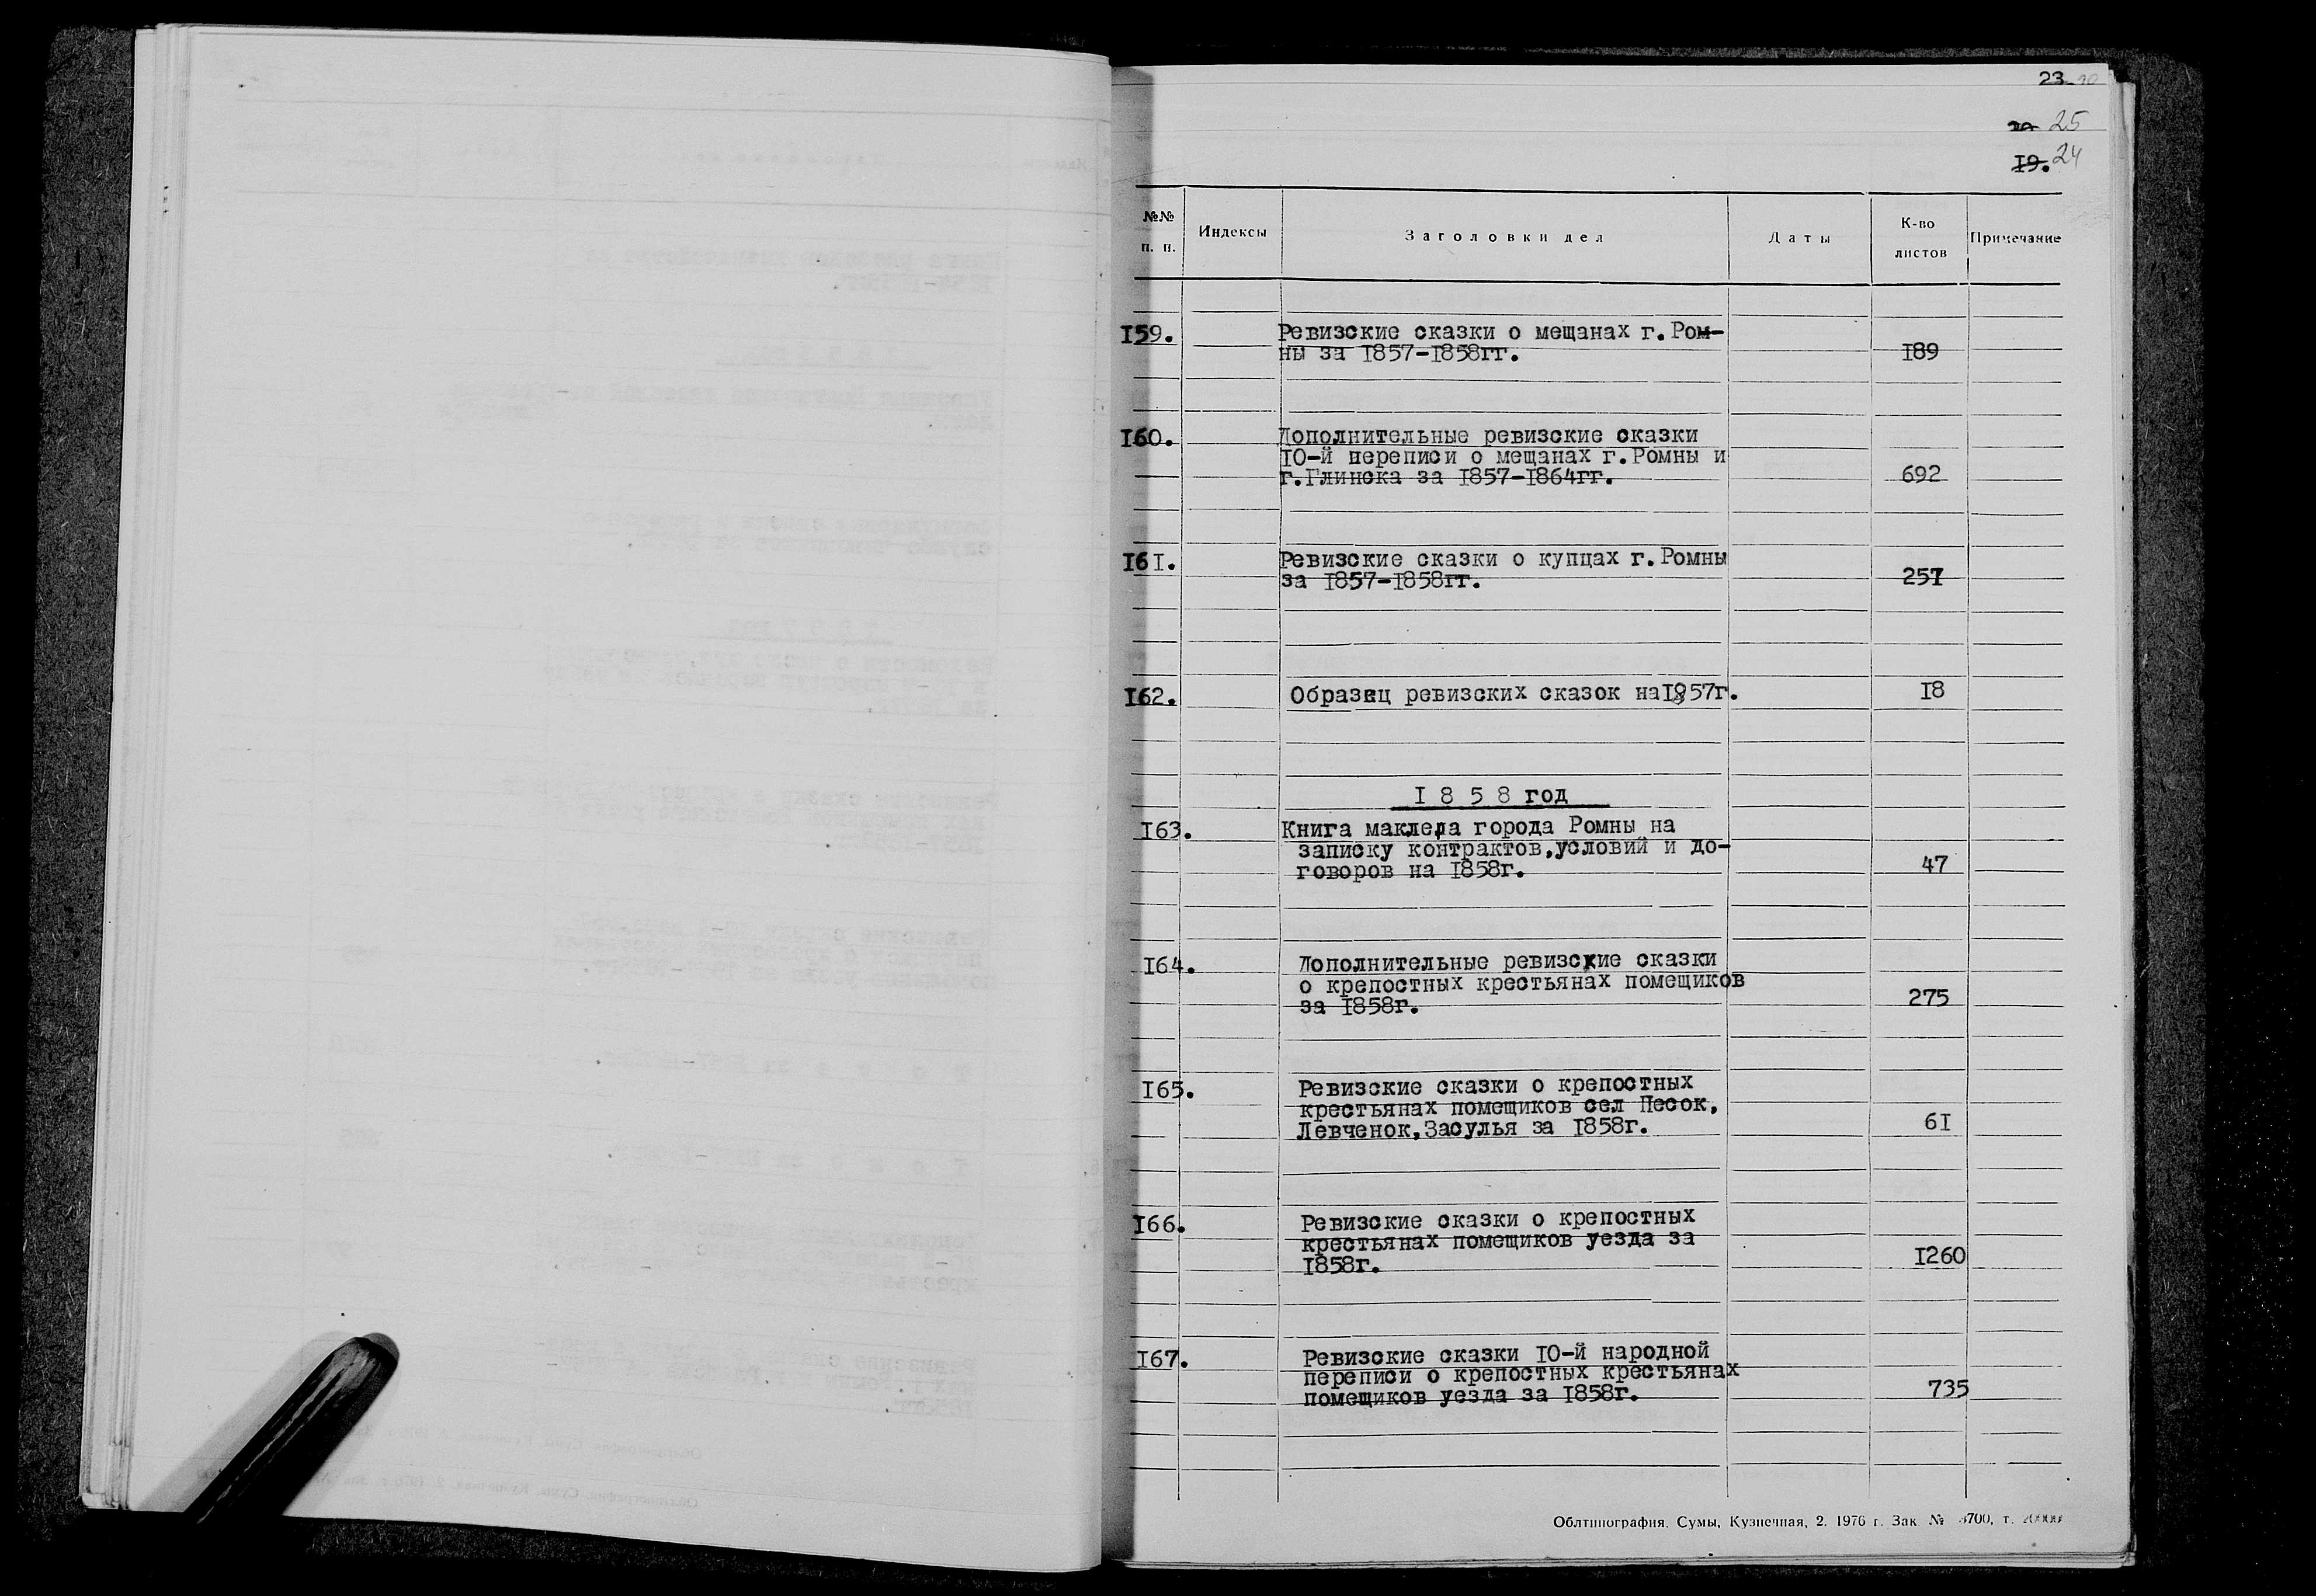 23
25
19. 24
№№ п. п.
Индексы
Заголовки дел
Даты
К-во листов
Примечание
159.
Ревизские сказки о мещанах г.Ром-
ны за 1857-1858гг.
189
160.
Дополнительные ревизские сказки
10-й переписи о мещанах г.Ромны и
г.Глинска за 1857-1864гг.
692
161.
Ревизские сказки о купцах г.Ромны
за 1857-1858гг.
257
162.
Образец ревизских сказок на1857г.
18
1 8 5 8 год
163.
Книга маклера города Ромны на
записку контрактов,условий и до-
говоров на 1858г.
47
164.
Дополнительные ревизские сказки
о крепостных крестьянах помещиков
за 1858г.
275
165.
Ревизские сказки о крепостных
крестьянах помещиков сел Песок,
Левченок,Засулья за 1858г.
61
166.
Ревизские сказки о крепостных
крестьянах помещиков уезда за
1858г.
1260
167.
Ревизские сказки 10-й народной
переписи о крепостных крестьянах
помещиков уезда за 1858г.
735
Облтипография. Сумы, Кузнечная, 2. 1976 г. Зак. №